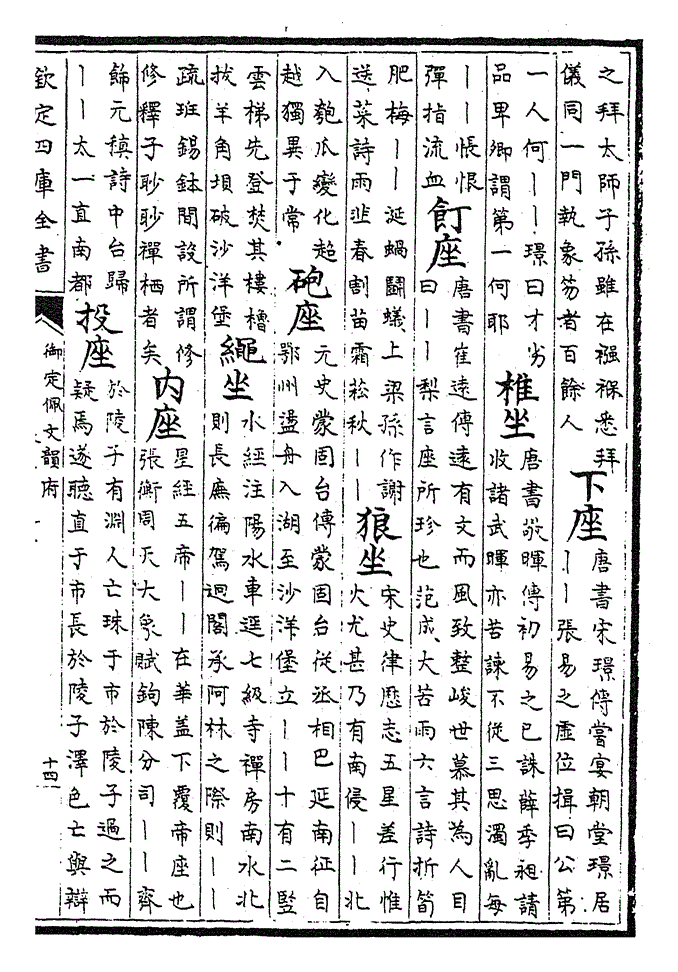 之拜太師子孫雖在襁褓悉拜
儀同一門執象笏者百餘人
下座
唐書宋璟傳嘗宴朝堂璟居
丨丨張易之虛位揖曰公第
一人何丨丨璟曰才劣
品卑卿謂第一何耶
椎坐
唐書敬暉傳初易之已誅薛季昶請
收諸武暉亦苦諫不從三思濁亂每
丨丨悵恨
彈指流血
飣座
唐書崔遠傳遠有文而風致整峻世慕其為人目
曰丨丨梨言座所珍也范成大苦雨六言詩折筍
肥梅丨丨涎蝸鬬蟻上梁孫作謝
送菜詩雨韭春割苗霜菘秋丨丨
狼坐
宋史律厯志五星差行惟
火尤甚乃有南侵丨丨北
入匏瓜變化超
越獨異于常
砲座
元史蒙固台傳蒙固台從丞相巴延南征自
鄂州盪舟入湖至沙洋堡立丨丨十有二豎
雲梯先登焚其樓櫓
拔羊角壩破沙洋堡
繩坐
水經注陽水車逕七級寺禪房南水北
則長廡徧駕迥閣承阿林之際則丨丨
疏班錫鉢閒設所謂修
修釋子眇眇禪栖者矣
内座
星經五帝丨丨在華蓋下覆帝座也
張衡周天大象賦鉤陳分司丨丨齊
飾元稹詩中台歸
丨丨太一直南都
投座
於陵子有淵人亡珠于市於陵子過之而
疑焉遂聽直于市長於陵子澤色亡與辯
欽定四庫全書
御定佩文韻府
十四